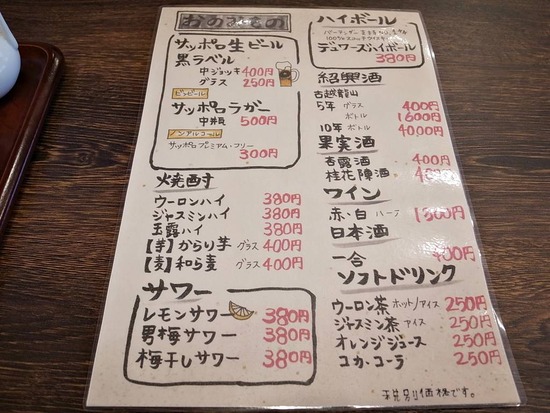 おのみもの
サッポロ生ビール
黒ラベル
中ジョッキ 400円
グラス 250円
ビンビール
サッポロラガー
中瓶 500円
ノンアルコール
サッポロプレミアム・フリー
300円
焼酎
ウーロンハイ 380円
ジャスミンハイ 380円
玉露ハイ 380円
【芋】からり芋 グラス 400円
【麦】和ら麦 グラス 400円
サワー
レモンサワー 380円
男梅サワー 380円
梅干しサワー 380円
ハイボール
デュワーズハイボール
380円
紹興酒
古越龍山
5年 グラス 400円
ボトル 1600円
10年 ボトル 4000円
果実酒
杏露酒 400円
桂花陳酒
ワイン
赤、白 ハーフ 1300円
日本酒
一合 400円
ソフトドリンク
ウーロン茶 ホット/アイス 250円
ジャスミン茶 アイス 250円
オレンジジュース 250円
コカ・コーラ 250円
※税別価格です。